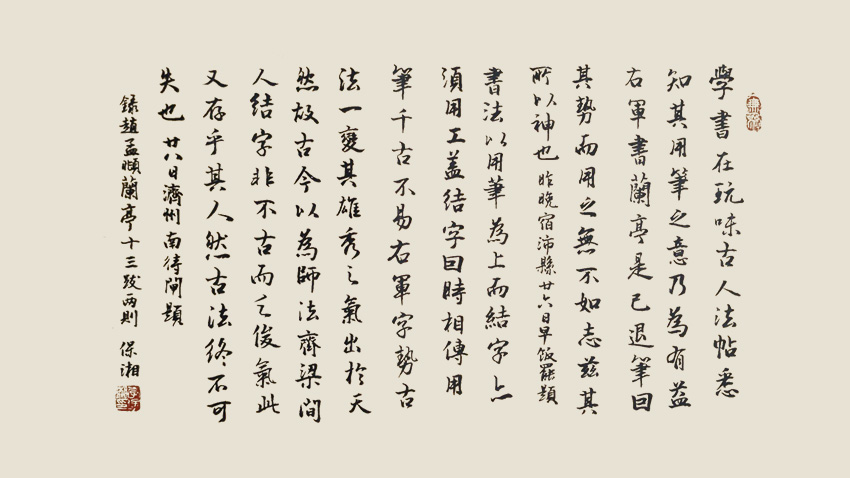 學書在玩味古人法帖悉
知其用筆之意乃為有益
右軍書蘭亭是已退筆囙
其勢而用之無不如志茲其
所以神也 昨晚宿沛縣廿六日早飯罷題
書法以用筆為上而結字亦
須用工蓋結字囙時相傳用
筆千古不易右軍字勢古
法一變其雄秀之氣出於天
然故古今以為師法齊梁間
人結字非不古而乏俊氣此
又存乎其人然古法終不可
失也 廿八日濟州南待閘題
錄趙孟頫蘭亭十三跋兩則 保湘